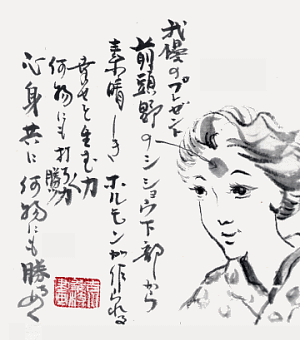 我慢のプレゼント
前頭野のシショウ下部から
素晴しき ホルモンが作られる
幸せを生む力
何物にも打勝
心身共に 何物にも勝る